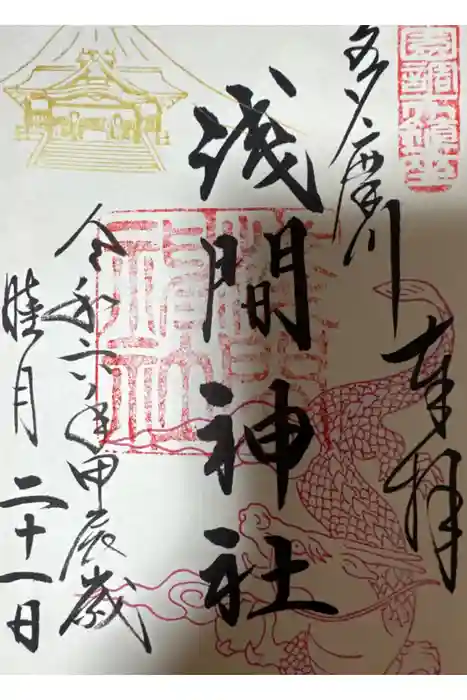 奉拝
多摩川
浅間神社
令和六年甲辰歳
睦月二十一日